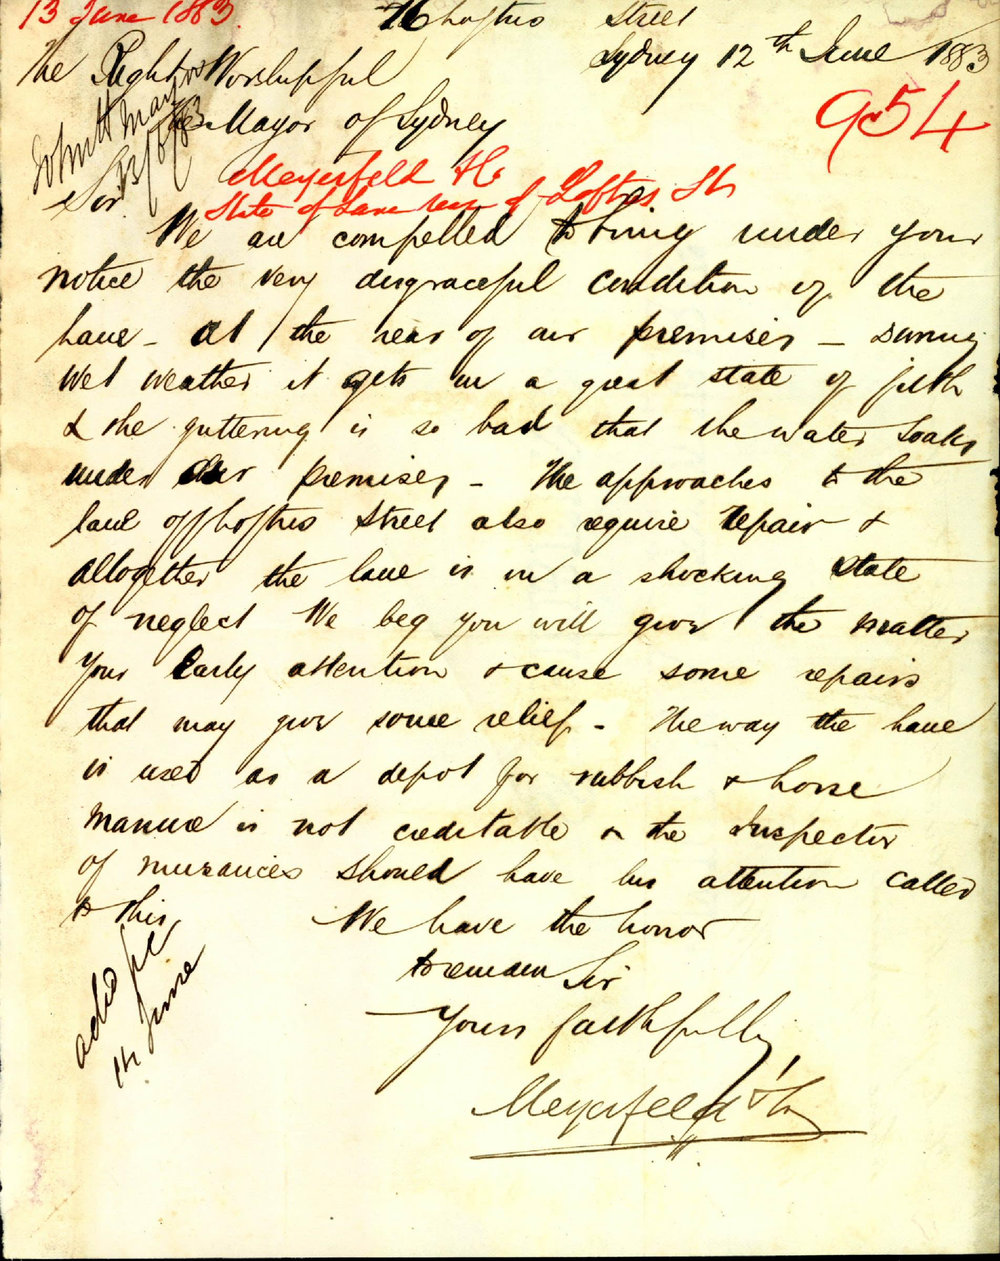 13 June 1883.
Loftus Street
Sydney 12th June 1883
The Right Worshipful
The Mayor of Sydney
954
John H Mayor
13/6/83
Meyerfeld & Co
State of Lane rear of Loftus St
Sir
We are compelled to bring under your
notice the very disgraceful condition of the
lane - at the rear of our premises - During
wet weather it gets in a great state of filth
& the guttering is so bad that the water soaks
under our premises - The approaches to the
lane off Loftus Street also require repair &
altogether the lane is in a shocking state
of neglect We beg you will give the matter
your early attention & cause some repairs
that may give some relief - The way the lane
is used as a depot for rubbish & horse
manure is not creditable & the Inspector
of nuisances should have his attention called
to this,
We have the honor
to remain Sir
Yours faithfully
Meyerfeld & Co
June